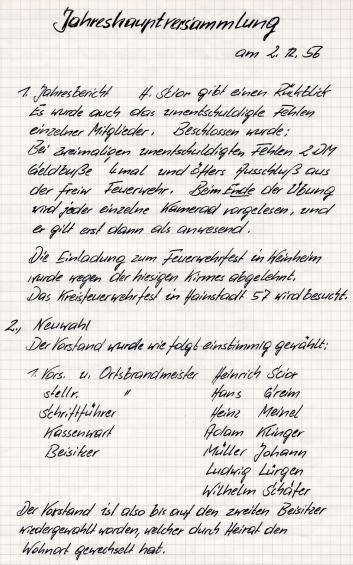 Jahreshauptversammlung
am 2.12.56
1. Jahresbericht H. Stior gibt einen Rückblick
Es wurde auch das unentschuldigte Fehlen
einzelner Mitglieder. Beschlossen wurde:
Bei zweimaligen unentschuldigten Fehlen 2 DM
Geldbuße 4 mal und öfters Ausschluß aus
der freiw Feuerwehr. Beim Ende der Übung
wird jeder einzelne Kamerad vorgelesen, und
er gilt erst dann als anwesend.
Die Einladung zum Feuerwehrfest in Weinheim
wurde wegen der hiesigen Kirmes abgelehnt.
Das Kreisfeuerwehrfest in Hainstadt 57 wird besucht.
2., Neuwahl
Der Vorstand wurde wie folgt einstimmig gewählt:
1. Vors. u. Ortsbrandmeister Heinrich Stior
stellv. " Hans Greim
Schriftführer Heinz Meinel
Kassenwart Adam Klinger
Beisitzer Müller Johann
Ludwig Lürgen
Wilhelm Schäfer
Der Vorstand ist also bis auf den zweiten Beisitzer
wiedergewählt worden, welcher durch Heirat den
Wohnort gewechselt hat.